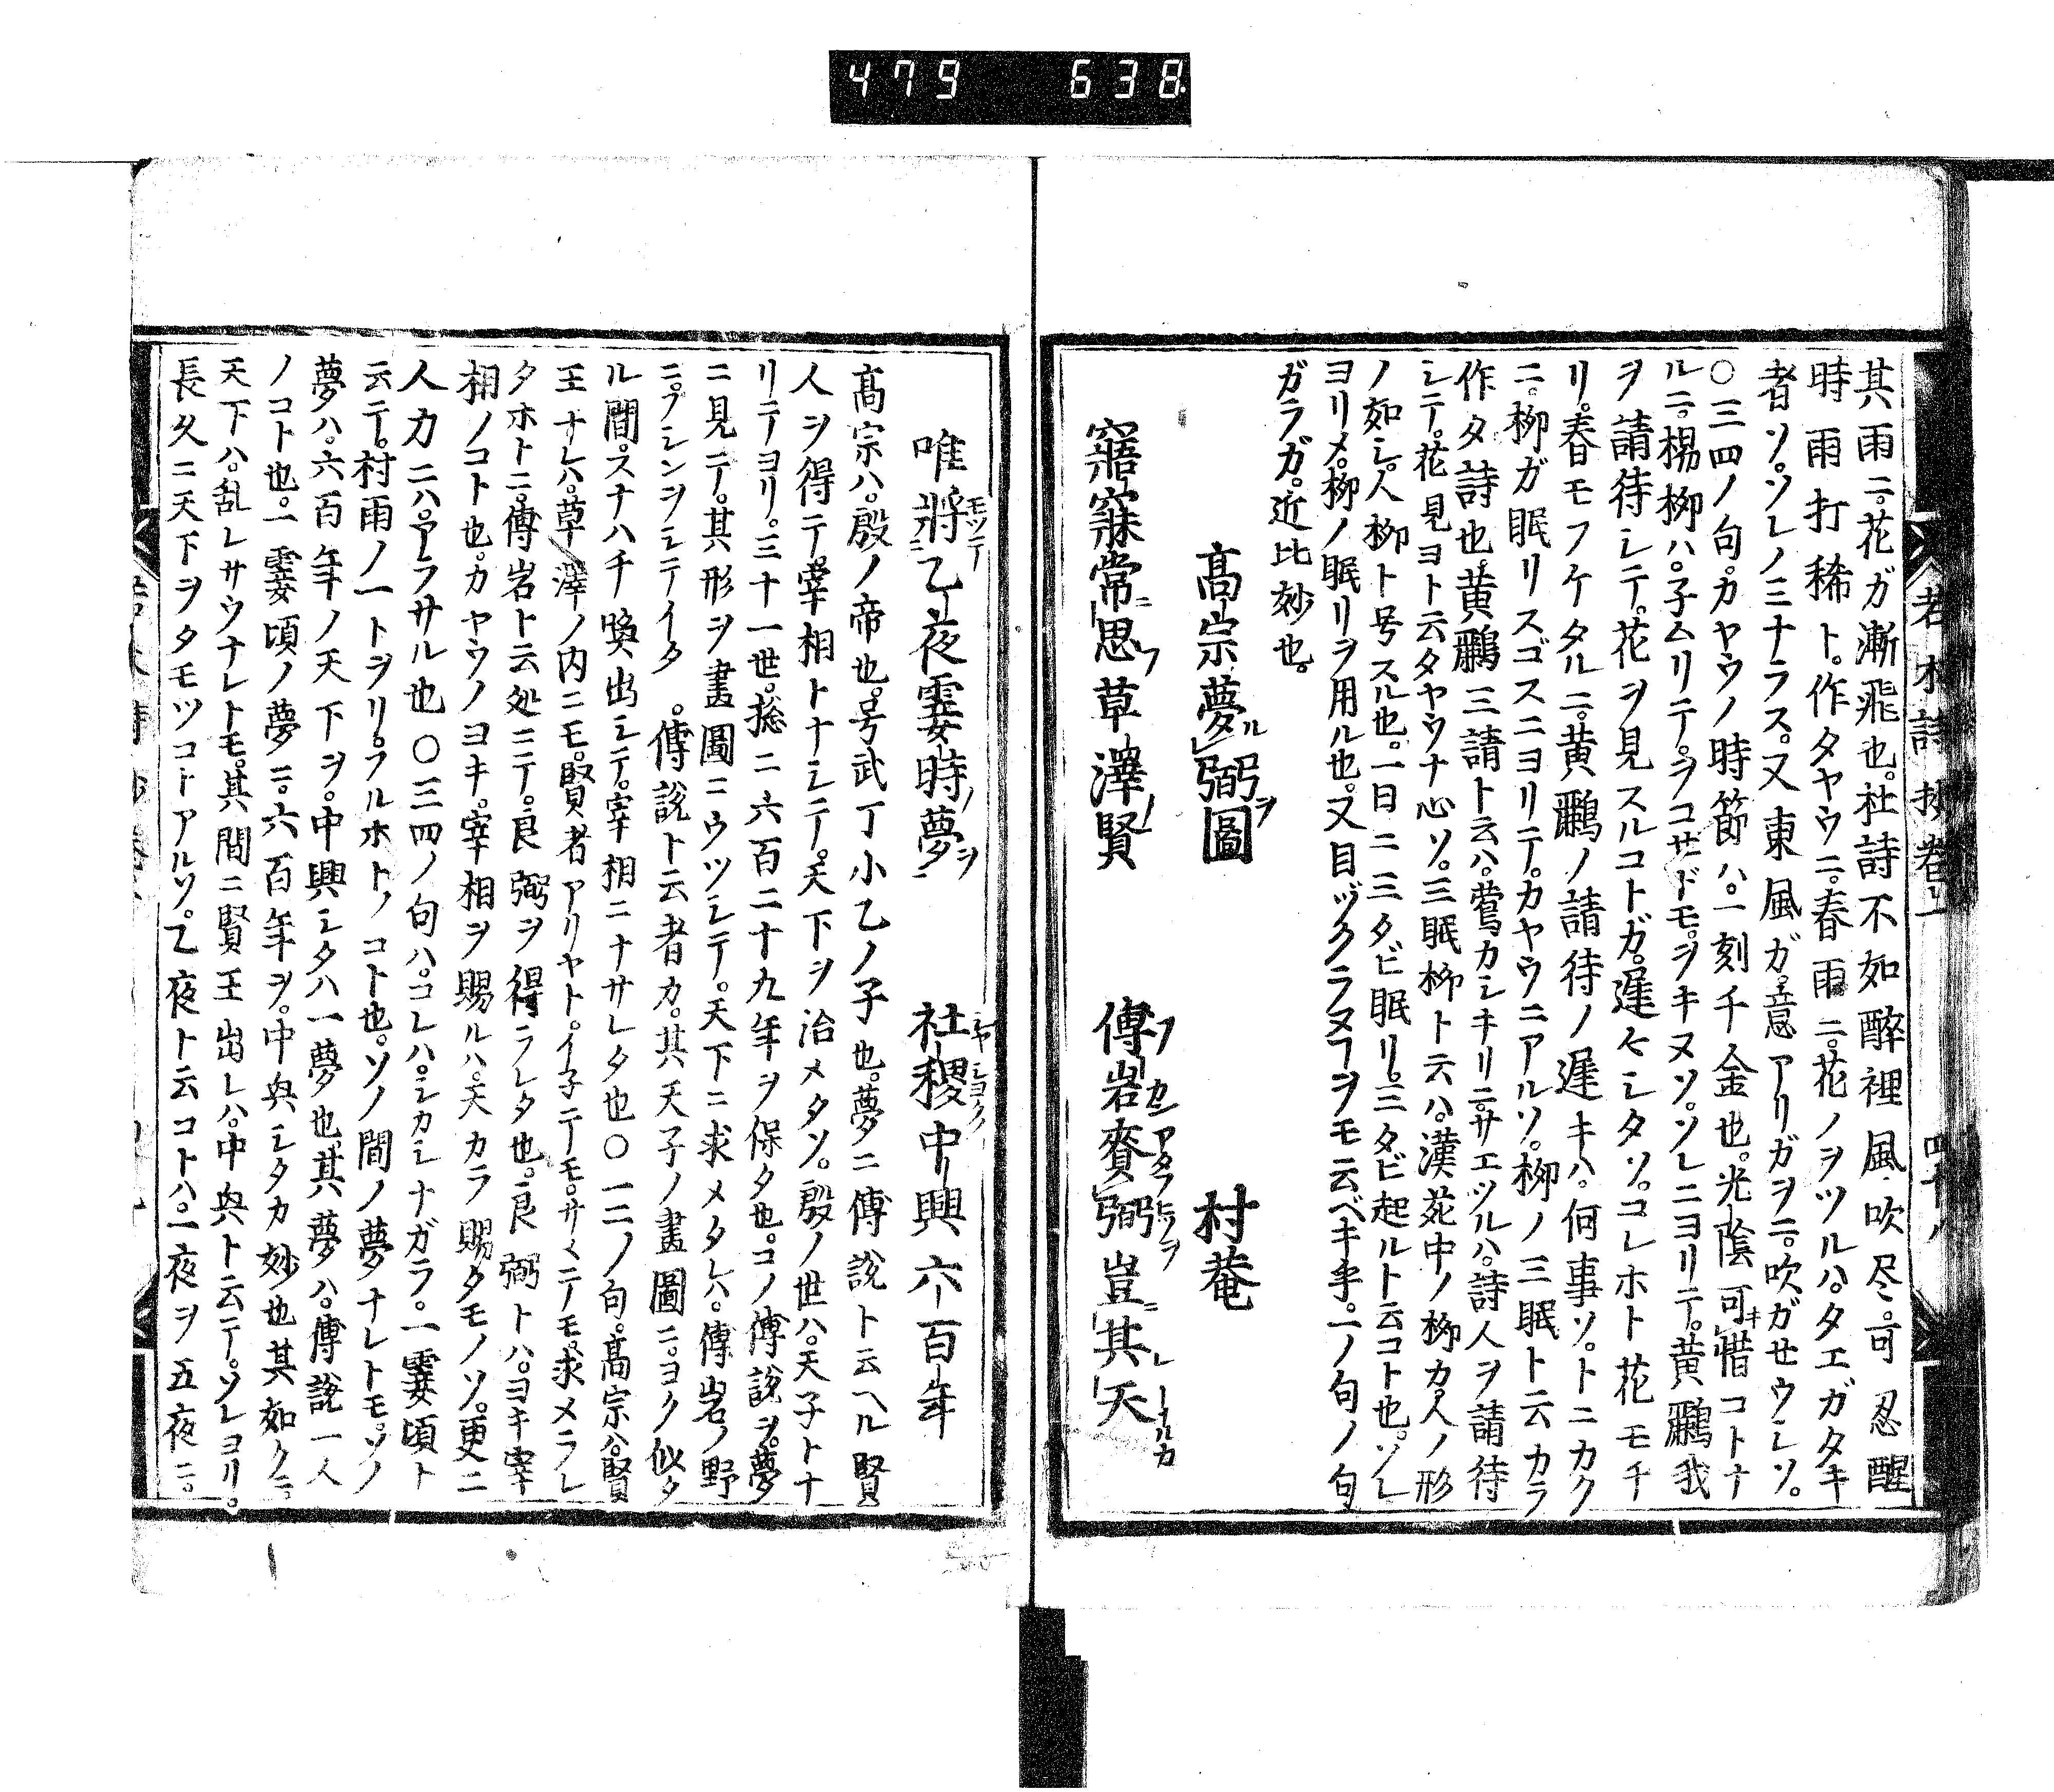 479 638
其雨ニ。花ガ漸飛也。杜詩不如醉裡風吹尽。可忍醒
時雨打稀ト。作タヤウニ。春雨ニ。花ノヲツルハ。タエガタキ
者ソ。ソレノミナラス。又東風ガ。意アリガヲニ。吹ガセウシソ。
〇三四ノ句。カヤウノ時節ハ。一刻千金也。光陰可惜コトナ
ルニ。楊柳ハ。子ムリテ。ヲコセドモ。ヲキヌソ。ソレニヨリテ。黄鸝我
ヲ請待シテ。花ヲ見スルコトガ。遅々シタソ。コレホト花モチ
リ。春モフケタルニ。黄鸝ノ請待ノ遅キハ。何事ソ。トニカク
ニ。柳ガ眠リスゴスニヨリテ。カヤウニアルソ。柳ノ三眠ト云カラ
作タ詩也。黄鸝三請ト云ハ。鶯カシキリニ。サエツルハ。詩人ヲ請待
シテ。花見ヨト云タヤウナ心ソ。三眠柳ト云ハ。漢苑中ノ柳カ人ノ形
ノ如シ。人柳ト号スル也。一日ニ三タビ眠リ。三タビ起ルト云コト也。ソレ
ヨリメ。柳ノ眠リヲ用ル也。又目ヅクラヌヲモ云ベキ乎。一ノ句ノ句
ガラガ。近比妙也。
髙宗夢ル弼ヲ圖 村菴
寤寐常ニ思フ草澤ノ賢 傅岩賚弼豈ニ其レ天ナルカ
唯將モツテ乙夜霎時ノ夢ヲ 社稷中興六百年
髙宗ハ。殷ノ帝也。号武丁小乙ノ子也。夢ニ傅説ト云ヘル賢
人ヲ得テ。宰相トナシテ。天下ヲ治メタソ。殷ノ世ハ。天子トナ
リテヨリ。三十一世。捴ニ六百二十九年ヲ保タ也。コノ傅説ヲ。夢
ニ見テ。其形ヲ畫圖ニウツシテ。天下ニ求メタレハ。傅岩ノ野
ニ。フシンヲシテイタ。傅説ト云者カ。其天子ノ畫圖ニ。ヨク似タ
ル間。スナハチ喚出シテ。宰相ニナサレタ也〇一二ノ句。髙宗ハ。賢
王ナレハ。草澤ノ内ニモ。賢者アリヤト。イ子テモ。サメテモ。求メラレ
タホトニ。傅岩ト云処ニテ。良弼ヲ得ラレタ也。良弼トハ。ヨキ宰
相ノコト也。カヤウノヨキ。宰相ヲ賜ルハ。天カラ賜タモノソ。更ニ
人力ニハ。アラサル也〇三四ノ句ハ。コレハ。シカシナガラ。一霎頃ト
云テ。村雨ノ一トヲリ。フルホトノコト也。ソノ間ノ夢ナレトモ。ソノ
夢ハ。六百年ノ天下ヲ。中興シタハ一夢也。其夢ハ。傅説一人
ノコト也。一霎頃ノ夢ニ。六百年ヲ。中興シタカ妙也其如クニ
天下ハ。乱レサウナレトモ。其間ニ賢王出レハ。中興ト云テ。ソレヨリ。
長久ニ天下ヲタモツコトアルソ。乙夜ト云コトハ。一夜ヲ五夜ニ。